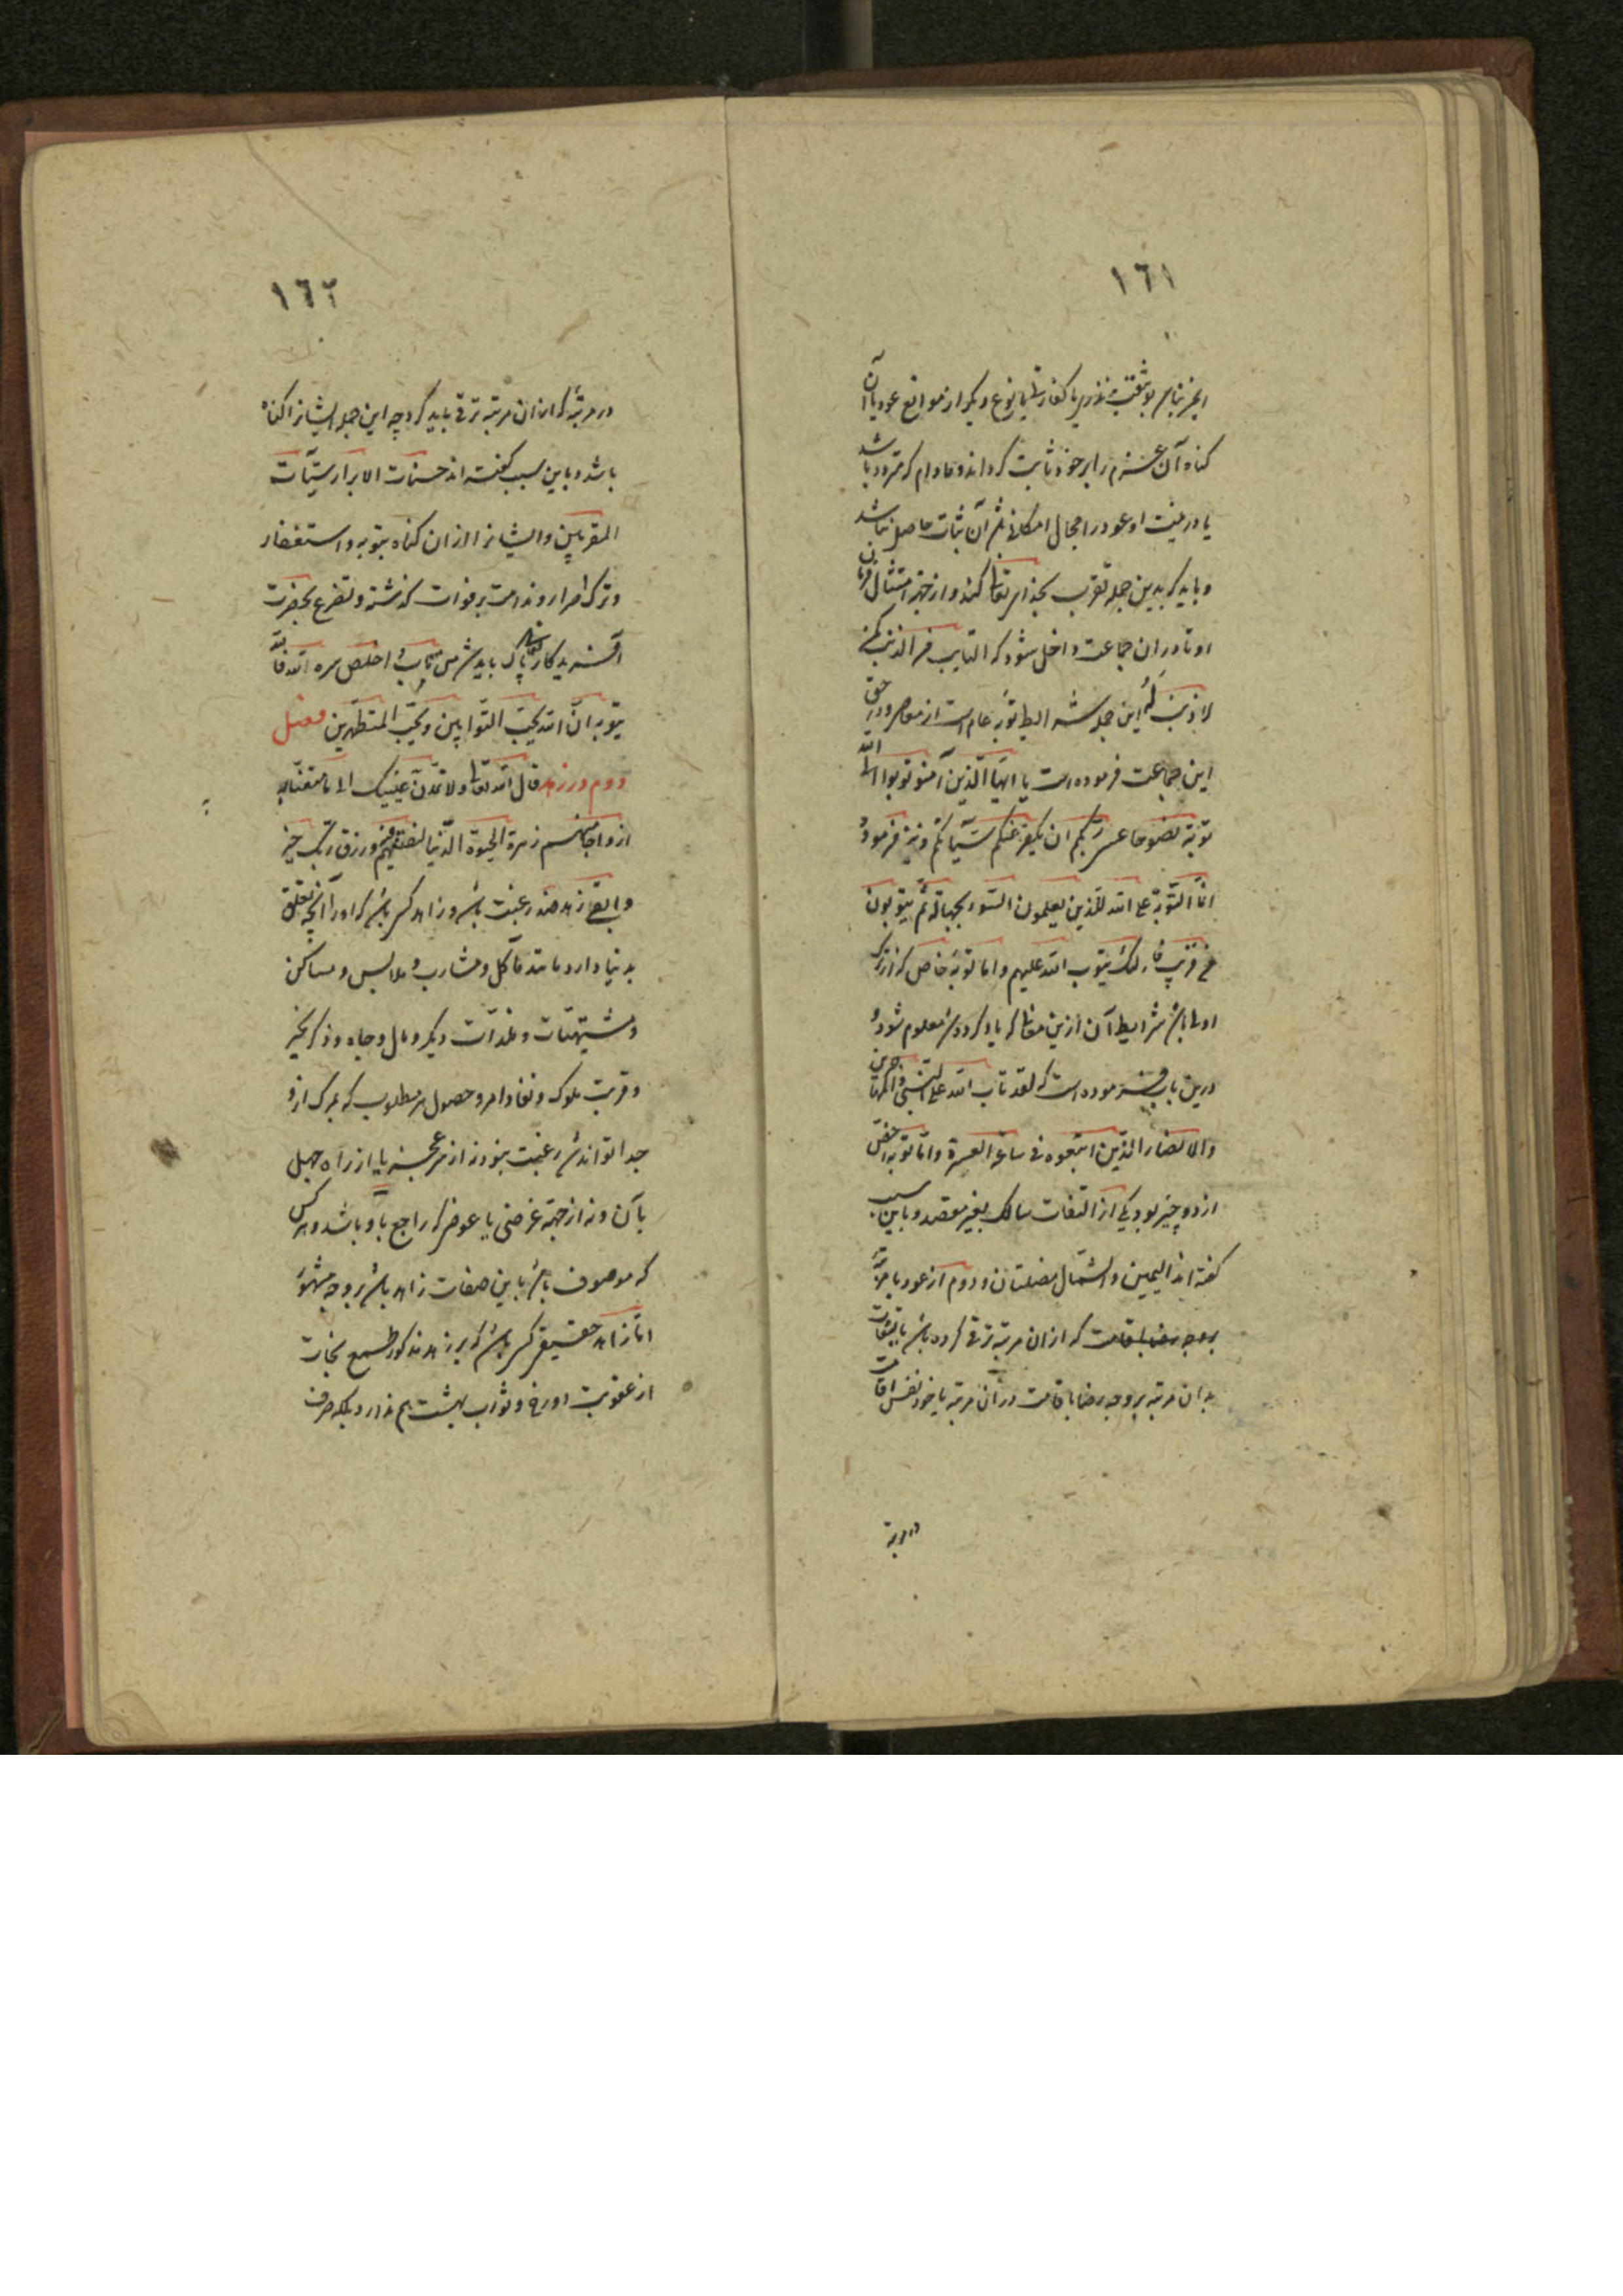 ١٦١
این جز بتاسی بوثیقت نذری یا کفارتی یا بنوعی دیگر از موانع عود با آن
گناه آن عزم را بر خود ثابت گرداند و مادام که متردد باشد
یا در نیت او عود را مجال امکانی باشد آن ثبات حاصل نباشد
و باید که بدین جمله تقرب بخدای تعالی کند و از جهة امتثال فرمان
او تا در ان جماعت داخل شود که التایب من الذنب کمن
لا ذنب له این جمله شرایط توبه عام است از معاصی و در حق
این جماعت فرموده است یا ایها الذین آمنو توبوا الی الله
توبة نصوحا عسی ربکم ان یکفر عنکم سیآتکم و نیز فرموده
انما التوبة علی الله للذین یعلمون السوء بجهالة ثم یتوبون
من قریب فاولئک یتوب الله علیهم و اما توبه خاص که از ترک
اولی باشد شرایط آن ازین معانی که یاد کرده شد معلوم شود و
درین باب فرموده است که لقد تاب الله علی النبی والمهاجرین
والانصار الذین اتبعوه فی ساعة العسرة و اما توبه اخص
از دو چیز بود یکی از التفات سالک بغیر مقصد و باین سبب
گفته اند الیمین والشمال مضلتان و دوم از عود با مرتبه
بوجه رضا باقامت که ازان مرتبه ترقی کرده باشد یا بالتفات
بدان مرتبه بر وجه رضا باقامت در آن مرتبه یا خود نفس اقامت
در مرتبه
١٦٢
در مرتبه که ازان مرتبه ترقی باید کرد چه این جمله ایشانرا گناه
باشد و باین سبب گفته اند حسنات الابرار سیآت
المقربین و ایشانرا ازان گناه بتوبه و استغفار
و ترک اصرار و ندامت بر فوات گذشته و تضرع بحضرت
آفریدکار تعالی پاک باید شد من تاب و اخلص سره لله فالله
یتوبه ان الله یحب التوابین و یحب المتطهرین فصل
دوم در زهد قال الله تعالی ولا تمدن عینیک الی ما متعنا به
ازواجا منهم زهرة الحیوة الدنیا لنفتنهم فیه و رزق ربک خیر
و ابقی زهد ضد رغبت باشد و زاهد کسی باشد که او را آنچه تعلق
بدنیا دارد مانند مآکل و مشارب و ملابس و مساکن
و مشتهیات و ملذات دیگر و مال و جاه و ذکر بخیر
و قربت ملوک و نفاذ امر و حصول هر مطلوب که بمرگ ازو
جدا تواند شد رغبت نبود نه از سر عجز یا از راه جهل
بآن و نه از جهة غرضی یا عوضی که راجع باو باشد و هر کس
که موصوف باشد باین صفات زاهد باشد بر وجه مشهور
اما زاهد حقیقی کسی باشد که بر زهد مذکور طمع نجات
از عقوبت دوزخ و ثواب بهشت هم ندارد بلکه صرف